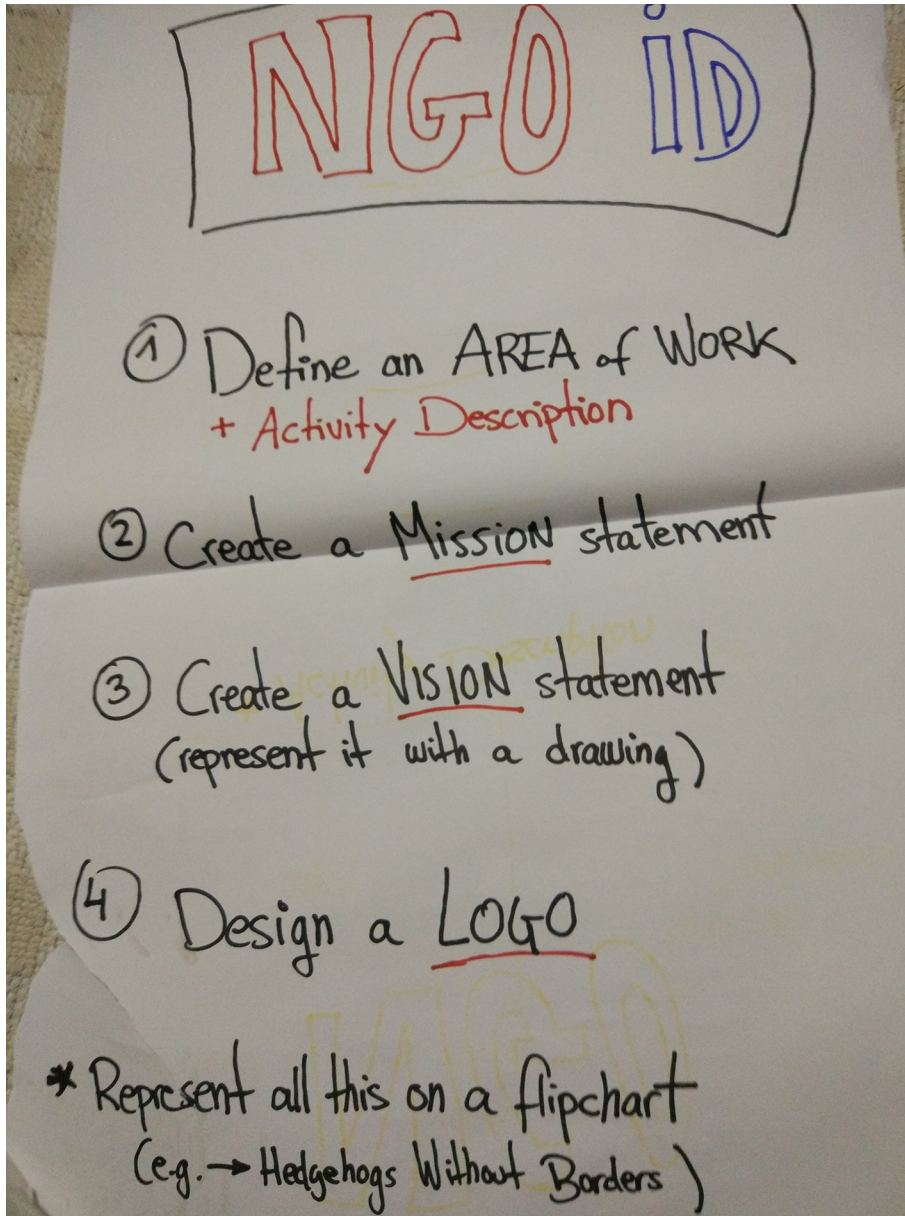 NGO iD
① Define an AREA of WORK
+ Activity Description
② Create a MissioN statement
③ Create a VISION statement
(represent it with a drawing)
④ Design a LOGO
* Represent all this on a flipchart
(e.g. → Hedgehogs Without Borders)